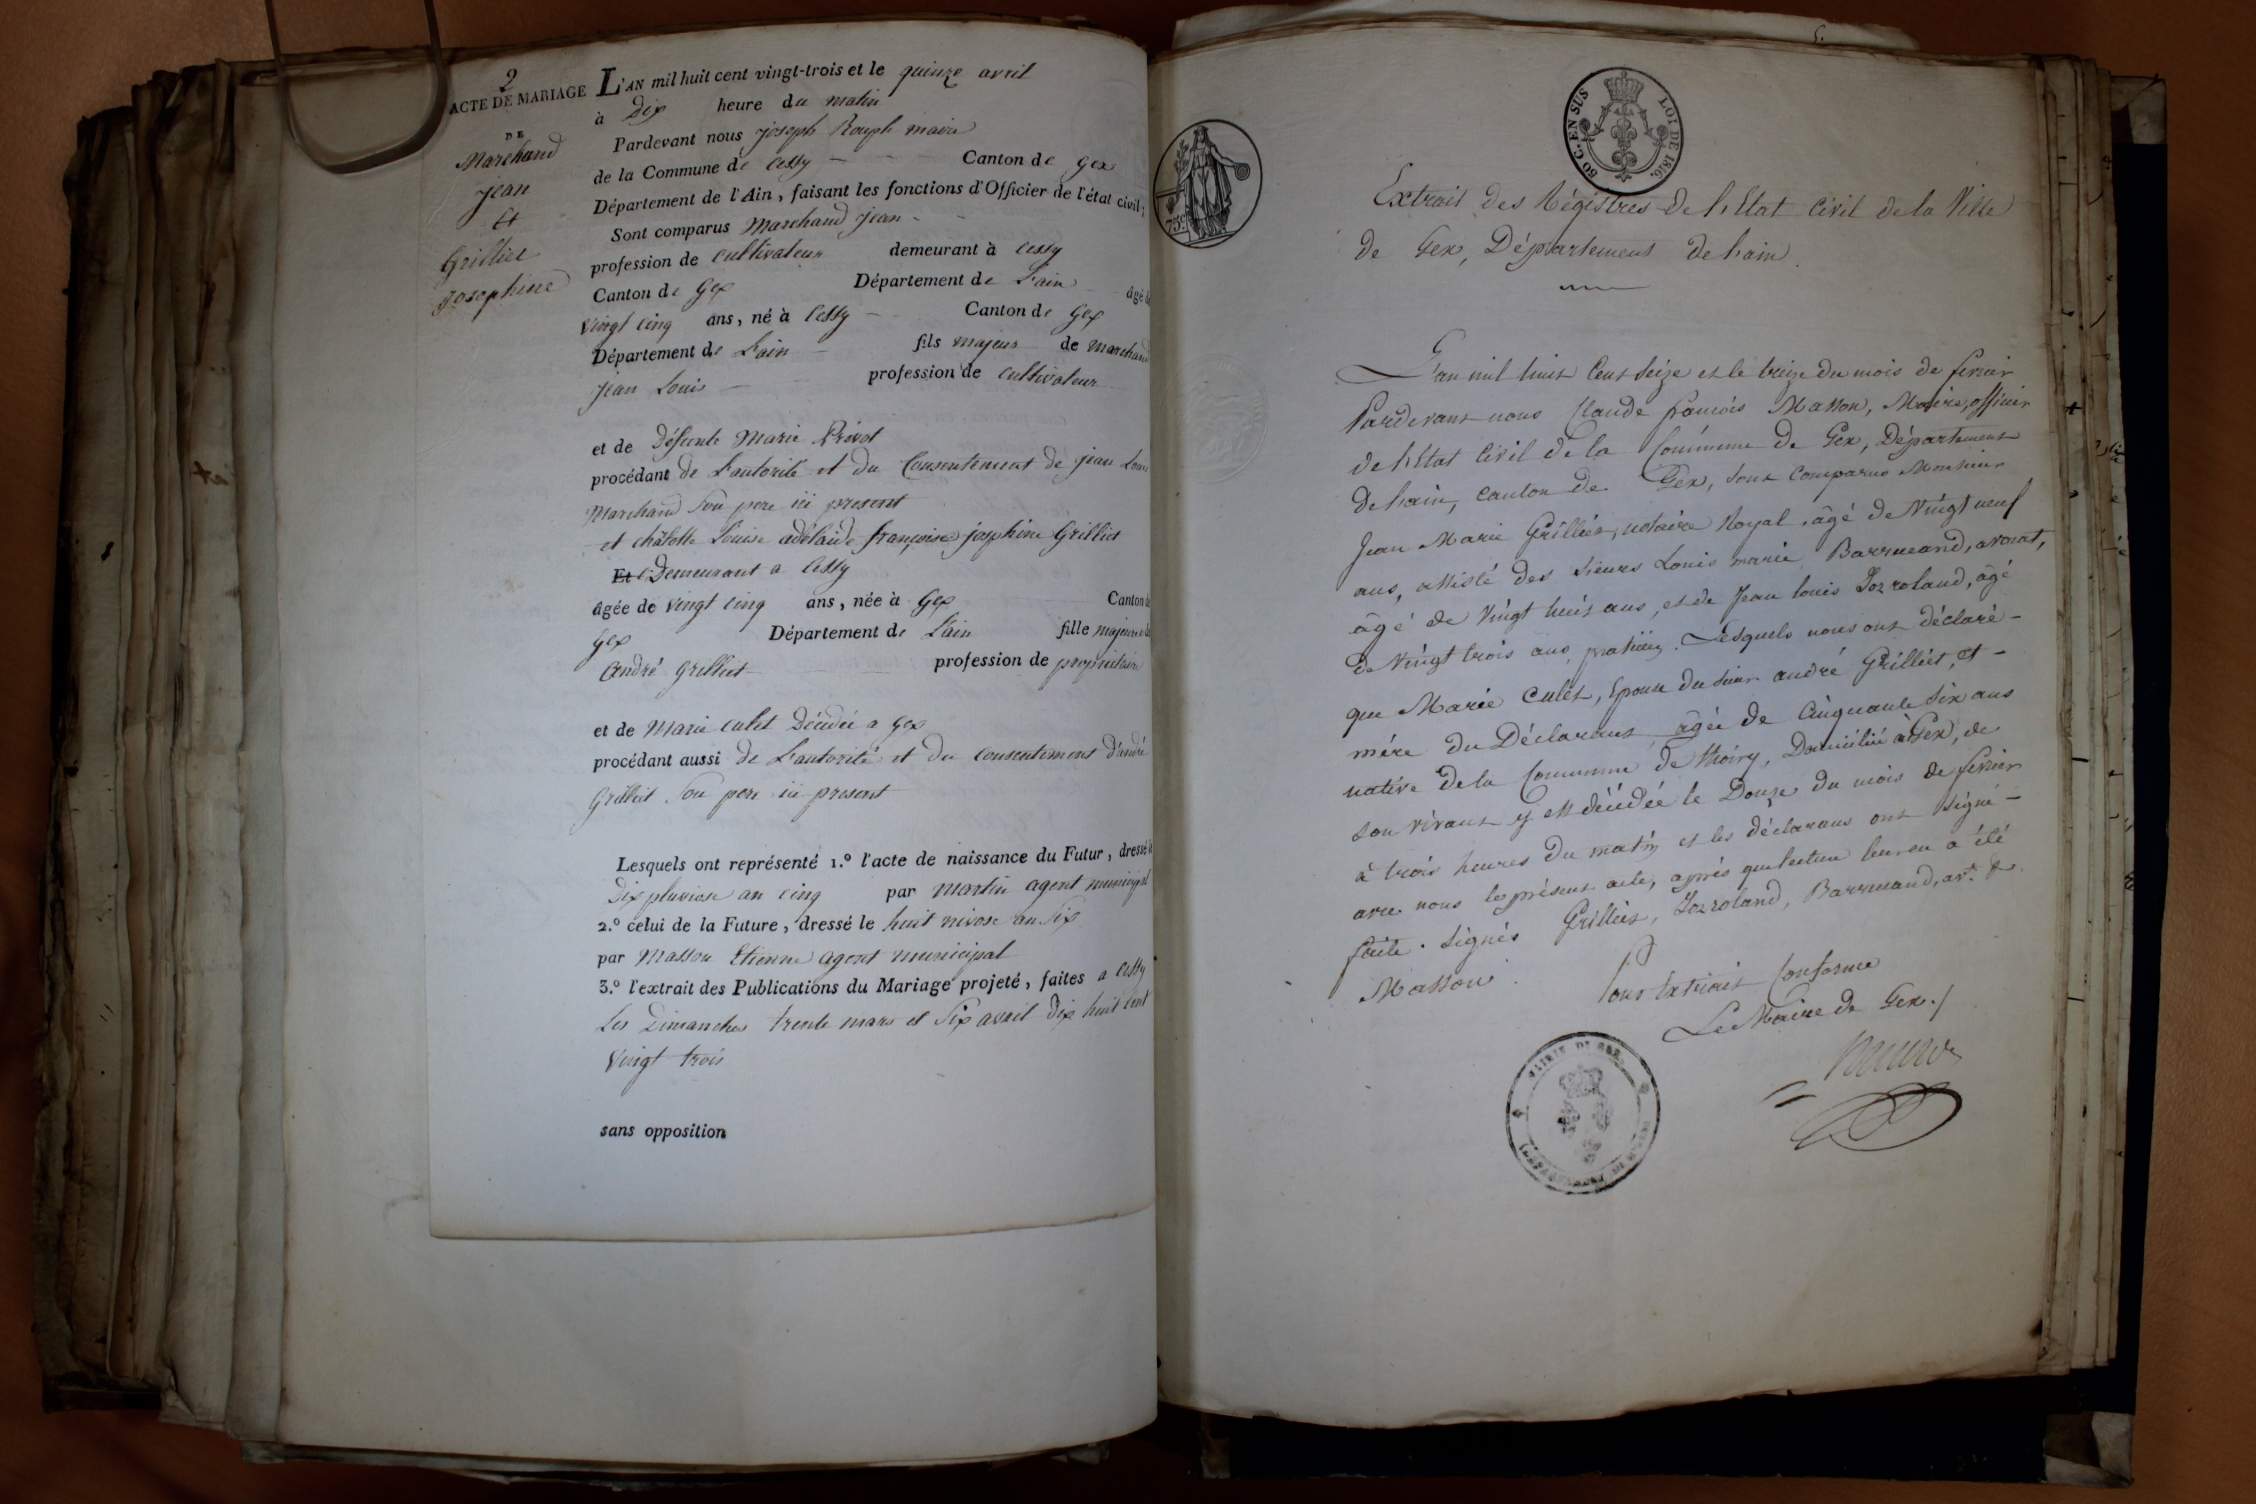 2
ACTE DE MARIAGE
DE
Marchand
jean
Et
Grilliet
josephine
L'AN mil huit cent vingt-trois et le quinze avril
à Dix heure du matin
Pardevant nous joseph Rouph maire
de la Commune de Cessy Canton de Gex
Département de l'Ain, faisant les fonctions d'Officier de l'état civil;
Sont comparus Marchand jean
profession de cultivateur demeurant à Cessy
Canton de Gex Département de L'ain âgé de
vingt cinq ans, né à Cessy Canton de Gex
Département de L'ain fils majeur de marchand
jean Louis profession de cultivateur
et de Défunte Marie Privot
procédant de L'autorité et du Consentement de jean Louis
Marchand Son pere ici present
et châlotte Louise adélaide françoise josephine Grilliet
Et Demeurant a Cessy
âgée de vingt cinq ans, née à Gex Canton de
Gex Département de L'ain fille majeure de
andré Grilliet profession de propriétaire
et de Marie culet Décédée a Gex
procédant aussi de L'autorité et du consentement d'andré
Grilliet Son pere ici present
Lesquels ont représenté 1.º l'acte de naissance du Futur, dressé le
Dix pluviose an cinq par martin agent municipal
2.º celui de la Future, dressé le huit nivose an Six
par Masson Etienne agent municipal
3.º l'extrait des Publications du Mariage projeté, faites a Cessy
Les Dimanches trente mars et Six avril Dix huit cent
Vingt trois
sans opposition
80 C. EN SUS LOI DE 1816.
75 c
Extrait des Régistres de l'Etat Civil de la Ville
de Gex, Département de l'ain.
L'an mil huit Cent Seize et le treize du mois de fevrier
Pardevant nous Claude françois Masson, Maire, officier
de l'Etat Civil de la Commune de Gex, Département
de l'ain, canton de Gex, sont Comparus Monsieur
Jean Marie Grilliet, notaire Royal, âgé de Vingt neuf
ans, assisté des Sieurs Louis marie Barrucand, avocat,
âgé de Vingt huit ans, et de Jean louis Jozroland, âgé
de Vingt trois ans, praticien. Lesquels nous ont déclaré
que Marie Culet, Epouse du Sieur andré Grilliet, et
mére du Déclarant, agée de Cinquante Six ans
native de la Commune de Thoiry, Domiciliée à Gex, de
son vivant y est décédée le Douze du mois de fevrier
à trois heures du matin et les déclarans ont signé
avec nous le présent acte, après que lecture leur en a été
faite. Signés Grilliet, Jozroland, Barrucand, avt. &
Masson.
Pour Extrait Conforme
Le Maire de Gex./
MAIRIE DE GEX